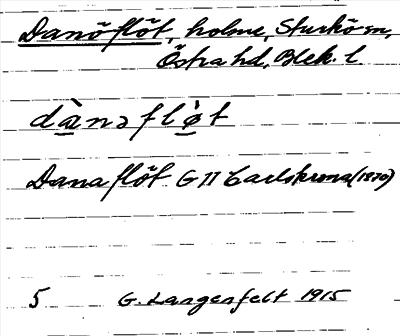 Danöflöt, holme, Sturkö sn,
Östra hd, Blek. l.
dànəflò̱t
Dana flöt G II Carlskrona (1870)
5 G. Langenfelt 1915